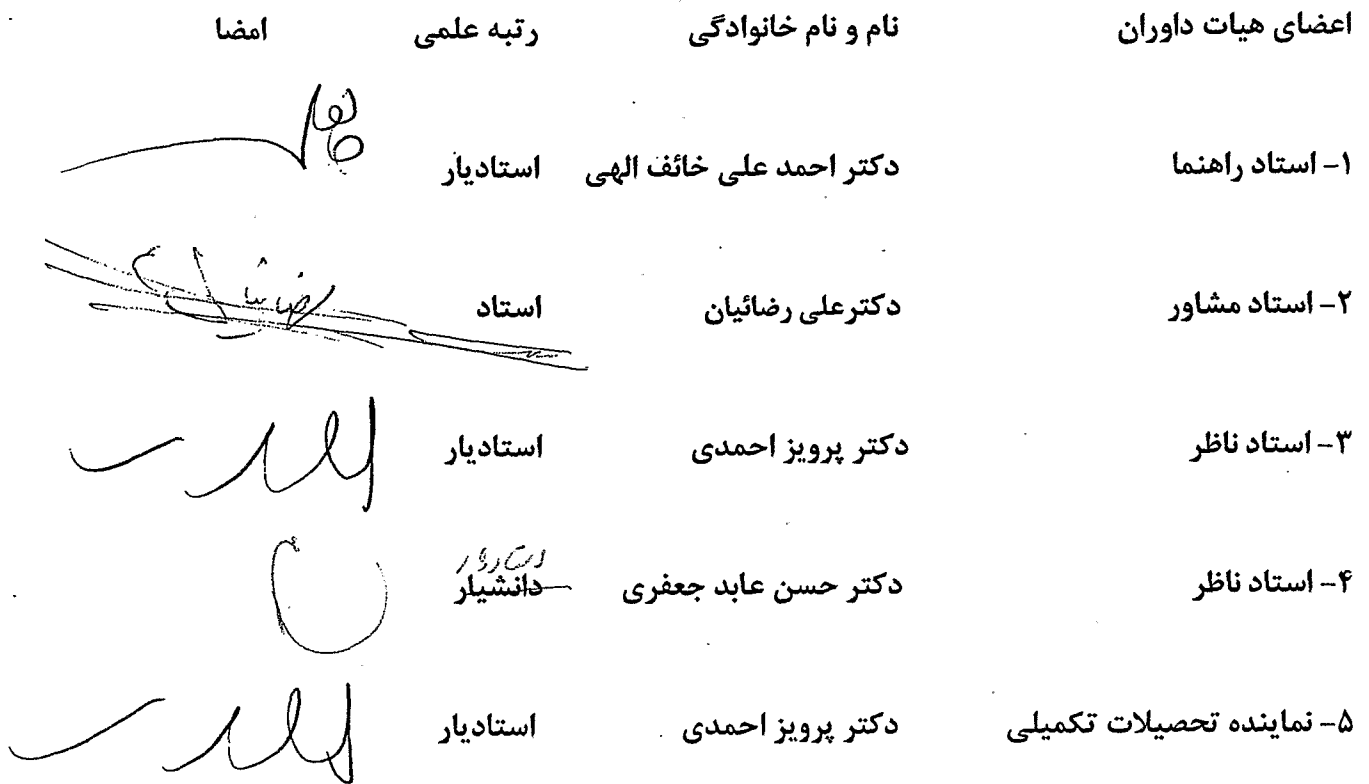 اعضای هیات داوران نام و نام خانوادگی رتبه علمی امضا
۱- استاد راهنما دکتر احمد علی خائف الهی استادیار
۲- استاد مشاور دکترعلی رضائیان استاد
۳- استاد ناظر دکتر پرویز احمدی استادیار
استادیار
۴- استاد ناظر دکتر حسن عابد جعفری دانشیار
۵- نماینده تحصیلات تکمیلی دکتر پرویز احمدی استادیار